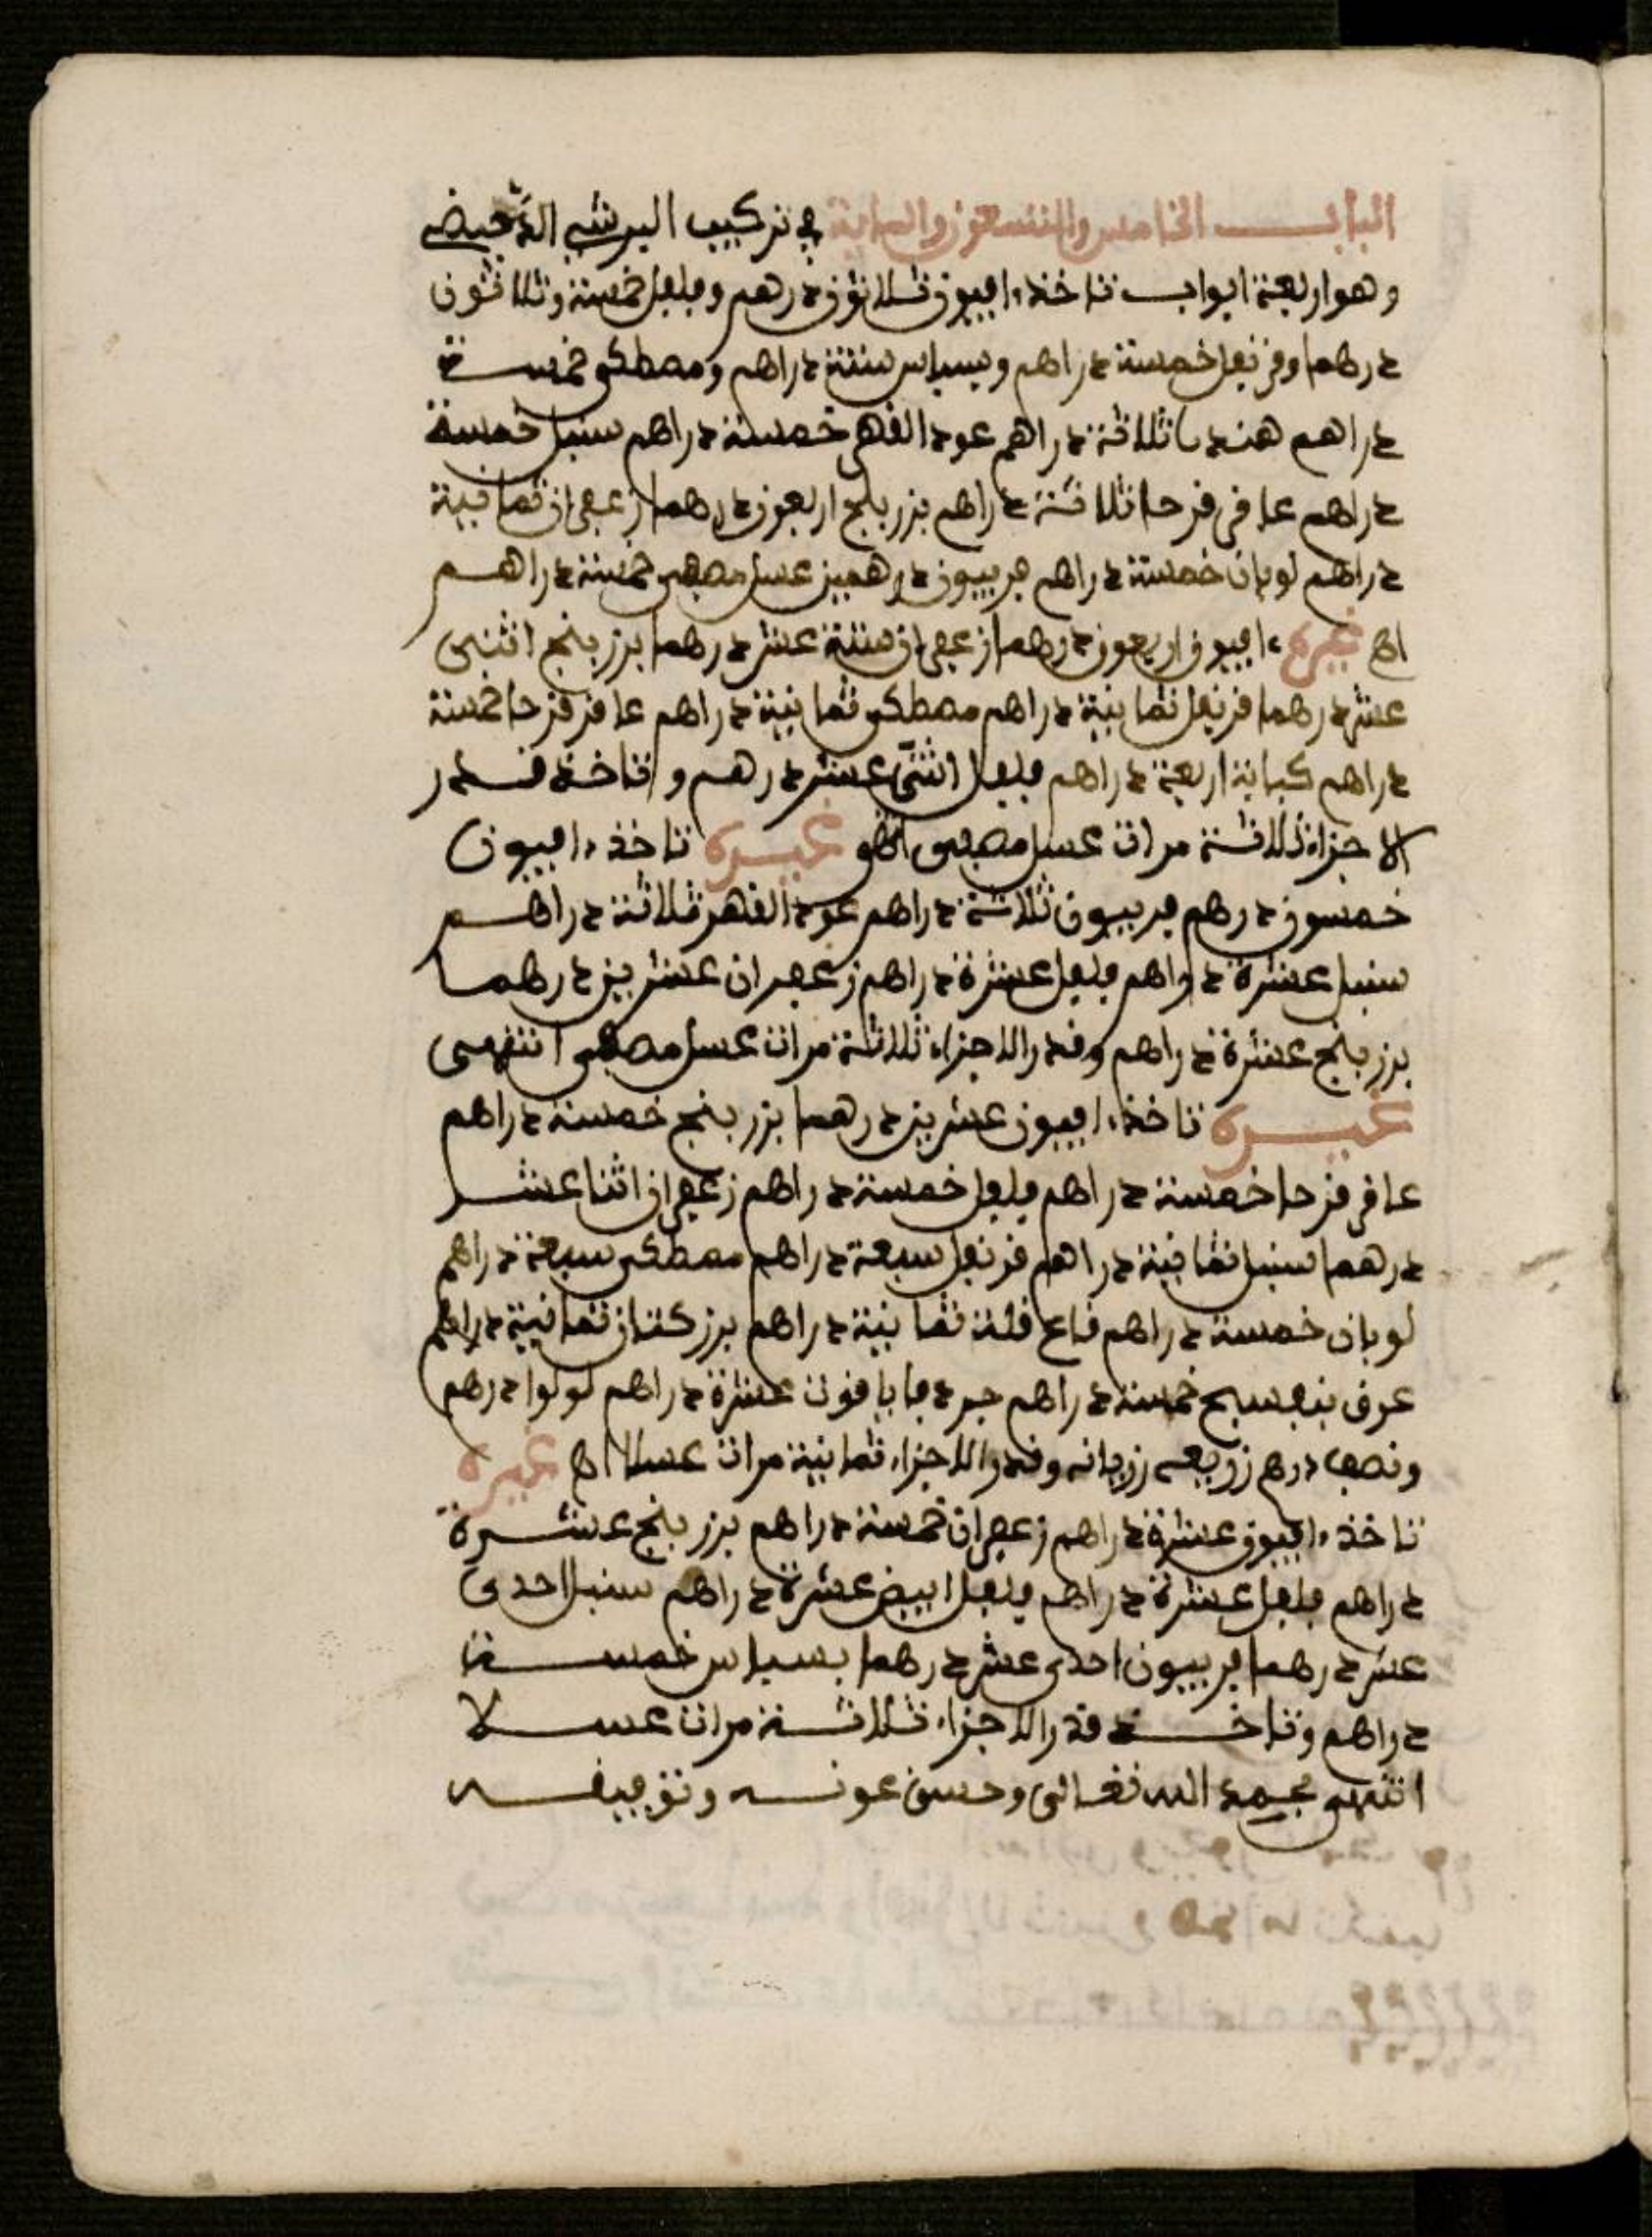 الباب الخامس والتسعون والماية في تركيب البرشي
وهو اربعة ابواب تاخذ افيون ثلاثون درهم وفلفل خمسة وثلاثون
درهما وقرنفل خمسة دراهم وبسباس ستة دراهم ومصطكى خمسة
دراهم هنديا ثلاثة دراهم عود القهر خمسة دراهم سنبل خمسة
دراهم عاقر قرحا ثلاثة دراهم بزر بنج اربعون درهما زعفران ثمانية
دراهم لوبان خمسة دراهم فربيون درهمين عسل مصفى خمسة دراهم
اه غيره افيون اربعون درهما زعفران ستة عشر درهما بزر بنج اثنى
عشر درهما قرنفل ثمانية دراهم مصطكى ثمانية دراهم عاقر قرحا خمسة
دراهم كبابة اربعة دراهم فلفل اثنى عشر درهم وتاخذ قدر
الاجزاء ثلاثة مرات عسل مصفى غيره تاخذ افيون
خمسون درهم فربيون ثلاثة دراهم عود القهر ثلاثة دراهم
سنبل عشرة دراهم فلفل عشرة دراهم زعفران عشرين درهما
بزر بنج عشرة دراهم وقدر الاجزاء ثلاثة مرات عسل مصفى انتهى
غيره تاخذ افيون عشرين درهما بزر بنج خمسة دراهم
عاقر قرحا خمسة دراهم فلفل خمسة دراهم زعفران اثنا عشر
درهما سنبل ثمانية دراهم قرنفل سبعة دراهم مصطكى سبعة دراهم
لوبان خمسة دراهم قاع قلة ثمانية دراهم بزر كتان ثمانية دراهم
عرق بنفسج خمسة دراهم يافوت عشرة دراهم لولوا درهم
ونصف درهم وقدر الاجزاء ثمانية مرات عسلا اه غيره
تاخذ افيون عشرة دراهم زعفران خمسة دراهم بزر بنج عشرة
دراهم فلفل عشرة دراهم فلفل ابيض عشرة دراهم سنبل احدى
عشر درهما فربيون احدى عشر درهما بسباس خمسة
دراهم وتاخذ قدر الاجزاء ثلاثة مرات عسلا
انتهى بحمد الله تعالى وحسن عونه وتوفيقه